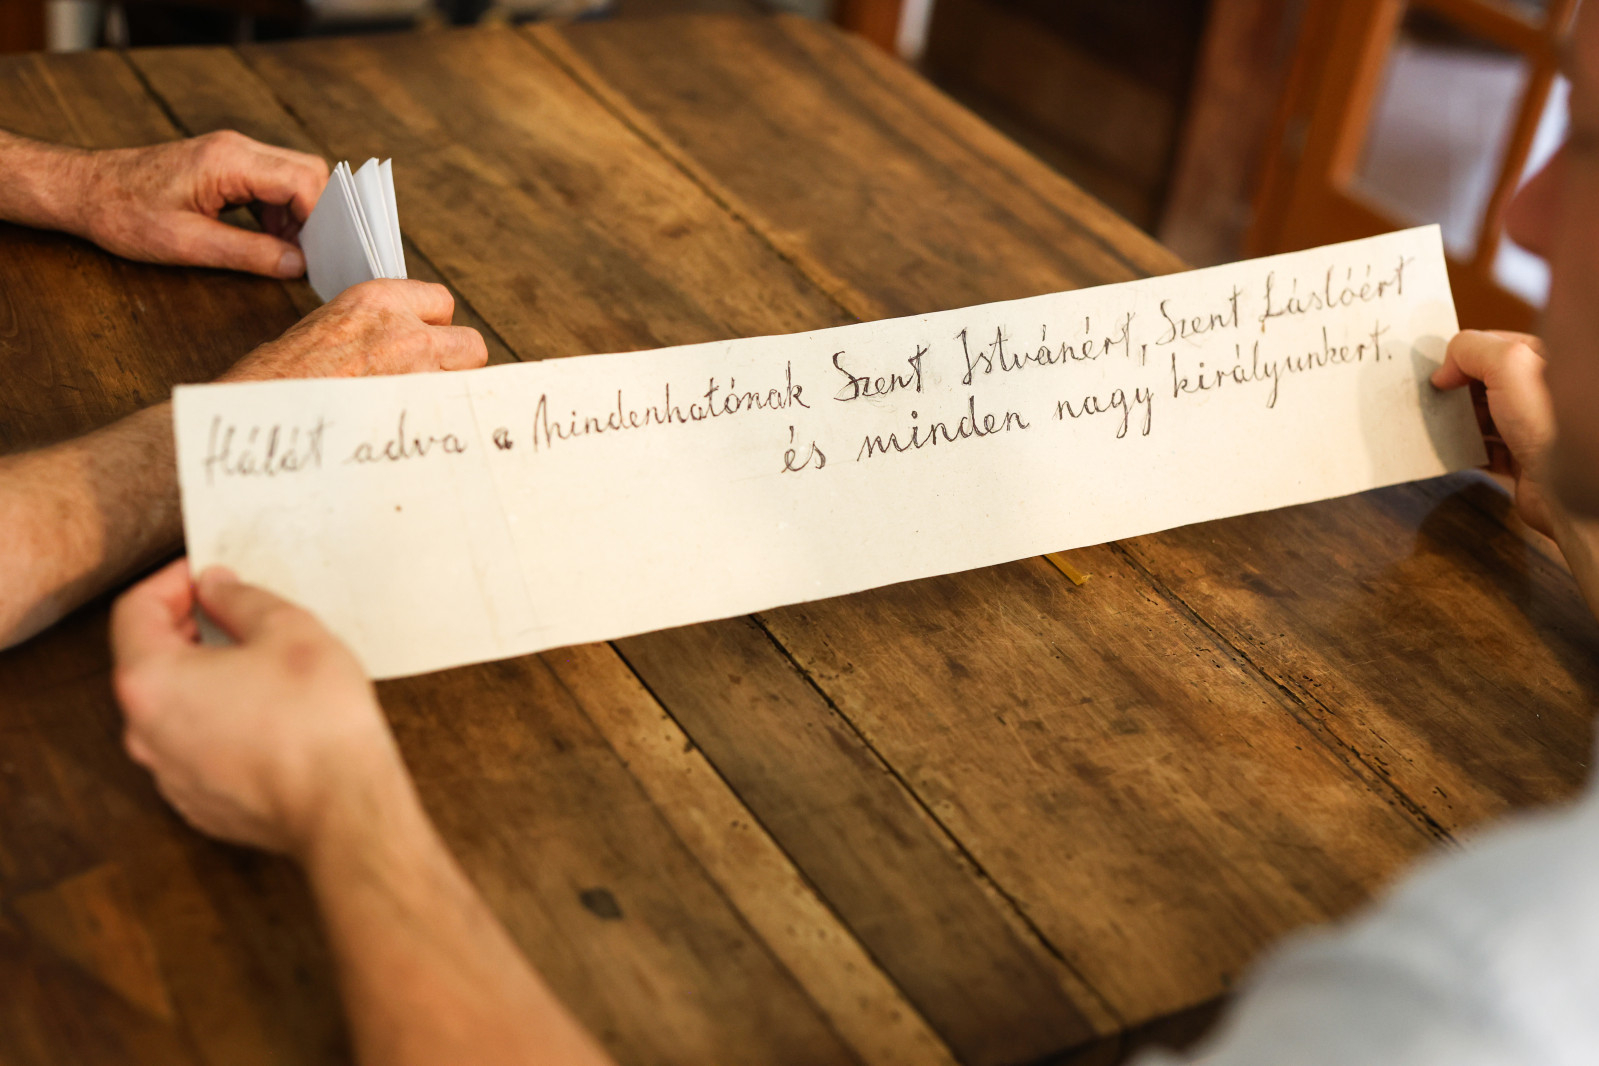 Hálát adva a Mindenhatónak Szent Istvánért, Szent Lászlóért
és minden nagy királyunkert.